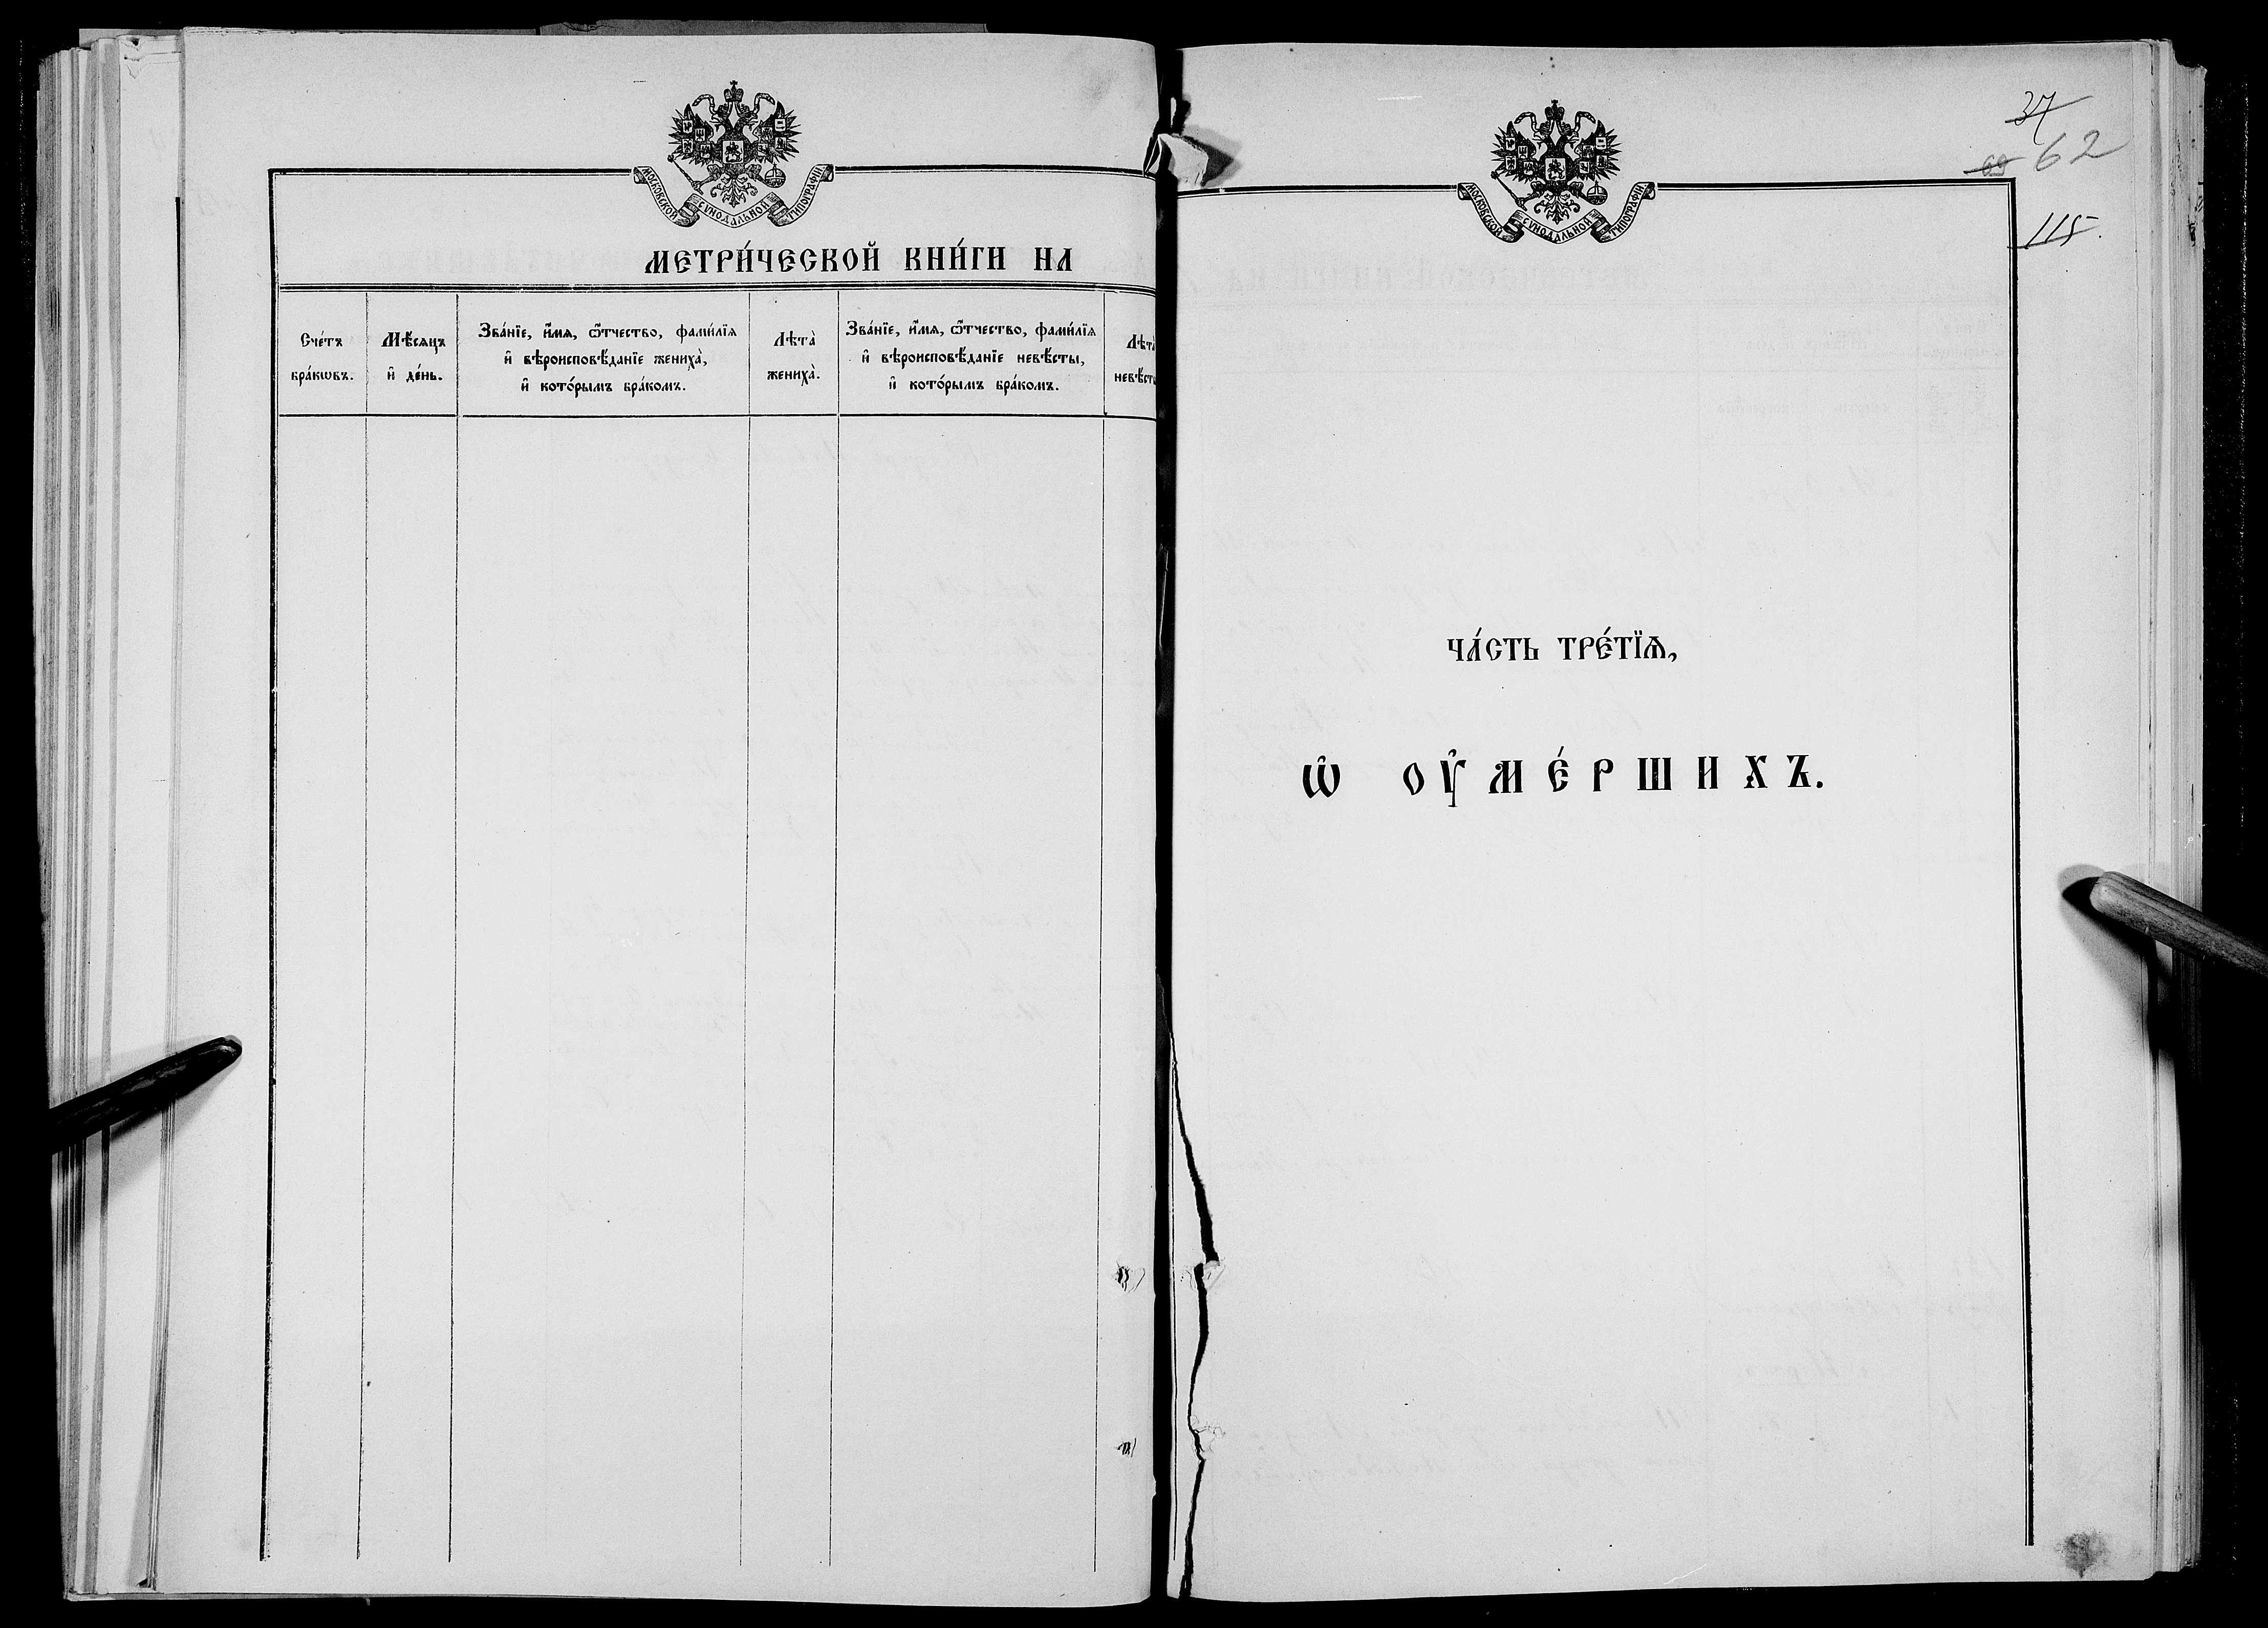 МОСКОВСКОЙ СѴНОДАЛЬНОЙ ТИПОГРАФІИ
МЕТРИ́ЧЕСКОЙ КНИ́ГИ НА
Сче́тъ
бра́кѡвъ.
Мѣ́сяцъ
и҆ де́нь.
Зва́нїе, и҆́мя, ѻ҆́тчество, фами́лїя
и҆ вѣроисповѣ́данїе жениха̀,
и҆ кото́рымъ бра́комъ.
Лѣта̀
жениха̀.
Зва́нїе, и҆́мя, ѻ҆́тчество, фами́лїя
и҆ вѣроисповѣ́данїе невѣ́сты,
и҆ кото́рымъ бра́комъ.
Лѣта̀
невѣ́ст
37
69 62
115.
МОСКОВСКОЙ СѴНОДАЛЬНОЙ ТИПОГРАФІИ
ЧА́СТЬ ТРЕ́ТЇѦ,
Ѡ҆ ОУ҆МЕ́РШИХЪ.